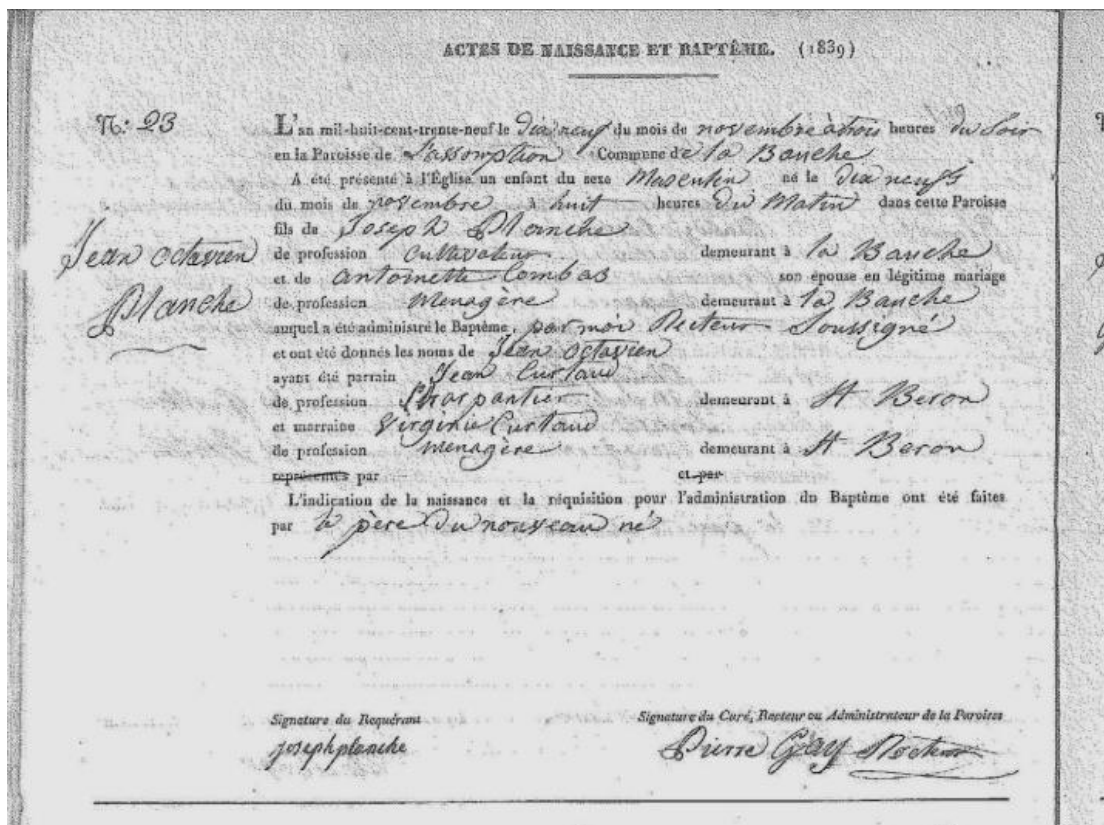 ACTES DE NAISSANCE ET BAPTÊME. (1839)
N.º 23
L'an mil-huit-cent-trente-neuf le dix neuf du mois de novembre à trois heures du soir
en la Paroisse de L'assomption Commune de la Bauche
A été présenté à l'Église un enfant du sexe Masculin né le dix neuf
du mois de novembre à huit heures du Matin dans cette Paroisse
fils de Joseph Planche
Jean octavien
Planche
de profession Cultivateur demeurant à la Bauche
et de antoinette Combas son épouse en légitime mariage
de profession Menagère demeurant à la Bauche
auquel a été administré le Baptême, par moi Recteur Soussigné
et ont été donnés les noms de Jean octavien
ayant été parrain Jean Curtaud
de profession Charpantier demeurant à St Beron
et marraine Virginie Curtaud
de profession menagère demeurant à St Beron
représentés par et par
L'indication de la naissance et la réquisition pour l'administration du Baptême ont été faites
par le père du nouveau né
Signature du Requérant Signature du Curé, Recteur ou Administrateur de la Paroisse
joseph planche Pierre Gay Recteur